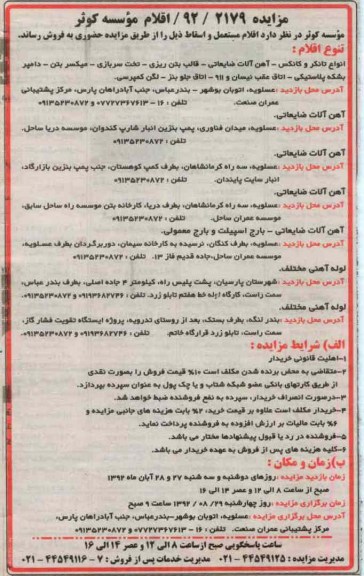 مزایده ۲۱۷۹ / ۹۲ / اقلام مؤسسه کوثر
مؤسسه کوثر در نظر دارد اقلام مستعمل و اسقاط ذیل را از طریق مزایده حضوری به فروش رساند.
تنوع اقلام :
انواع تانکر و کانکس - آهن آلات ضایعاتی - قالب بتن ریزی - تخت سربازی - میکسر بتن - دامپر
بشکه پلاستیکی - اتاق عقب نیسان و ۹۱۱ - اتاق جلو بنز - لگن کمپرسی.
آدرس محل بازدید :عسلویه، اتوبان بوشهر - بندرعباس، جنب آبادراهان پارس، مرکز پشتیبانی
عمران صنعت. تلفن : ۱۶ - ۰۷۷۲۷۳۶۷۶۱۳ و ۰۹۱۳۵۲۳۰۸۷۲
آهن آلات ضایعاتی.
آدرس محل بازدید :عسلویه، میدان فناوری، پمپ بنزین انبار شارپ کندوان، موسسه دریا ساحل.
تلفن : ۰۹۱۳۵۲۳۰۸۷۲
آهن آلات ضایعاتی.
آدرس محل بازدید :عسلویه، سه راه کرمانشاهان، بطرف کمپ کوهستان، جنب پمپ بنزین بازارگاد،
انبار سایت پایندان. تلفن : ۰۹۱۳۵۲۳۰۸۷۲
آهن آلات ضایعاتی.
آدرس محل بازدید :عسلویه، سه راه کرمانشاهان، بطرف دریا، کارخانه بتن موسسه راه ساحل سابق،
موسسه عمران ساحل. تلفن : ۰۹۱۳۵۲۳۰۸۷۲
آهن آلات ضایعاتی - بارج اسپلیت و بارج معمولی.
آدرس محل بازدید :عسلویه، بطرف کنگان، نرسیده به کارخانه سیمان، دوربرگردان بطرف عسلویه،
موسسه عمران ساحل-جاده قدیم فاز ۱۳. تلفن : ۰۹۱۳۵۲۳۰۸۷۲
لوله آهنی مختلف.
آدرس محل بازدید :شهرستان پارسیان، پشت پلیس راه، کیلومتر ۴ جاده اصلی، بطرف بندر عباس،
سمت راست، کارگاه لوله خط هفتم تابلو زرد. تلفن : ۰۹۱۹۳۶۸۲۷۴۶ و ۰۹۱۳۵۲۳۰۸۷۲
لوله آهنی مختلف.
آدرس محل بازدید :بندر لنگه، بطرف بستک، بعد از روستای تدرویه، پروژه ایستگاه تقویت فشار گاز،
سمت راست، تابلو زرد قرارگاه خاتم. تلفن : ۰۹۱۹۳۶۸۲۷۴۶ و ۰۹۱۳۵۲۳۰۸۷۲
الف) شرایط مزایده :
۱-اهلیت قانونی خریدار
۲-متقاضی به محض برنده شدن مکلف است ۱۰% قیمت فروش را بصورت نقدی
از طریق کارتهای بانکی عضو شبکه شتاب و یا چک پول به عنوان سپرده بپردازد.
۳-درصورت انصراف خریدار، سپرده به نفع فروشنده ضبط خواهد شد.
۴-خریدار مکلف است علاوه بر قیمت خرید، ۲% بابت هزینه های جانبی مزایده و
۶% بابت مالیات بر ارزش افزوده به فروشنده پرداخت نماید.
۵-فروشنده در رد یا قبول پیشنهادها مختار می باشد.
۶-کلیه هزینه های پس از فروش به عهده خریدار می باشد.
ب)زمان و مکان :
زمان بازدید مزایده :روزهای دوشنبه و سه شنبه ۲۷ و ۲۸ آبان ماه ۱۳۹۲
صبح از ساعت ۸ الی ۱۲ و عصر ۱۴ الی ۱۶
زمان برگزاری مزایده :روز چهارشنبه ۲۹/ ۰۸ / ۱۳۹۲ ساعت ۹ صبح
آدرس محل برگزاری مزایده :عسلویه، اتوبان بوشهر-بندرعباس، جنب آبادراهان پارس،
مرکز پشتیبانی عمران صنعت. تلفن : ۱۶ - ۰۷۷۲۷۳۶۷۶۱۳ و ۰۹۱۳۵۲۳۰۸۷۲
ساعت پاسخگویی صبح ازساعت ۸ الی ۱۲ و عصر ۱۴ الی ۱۶
مدیریت مزایده : ۴۴۵۴۹۱۲۵ - ۰۲۱ مدیریت خدمات پس از فروش : ۷ - ۴۴۵۴۹۱۱۶ - ۰۲۱